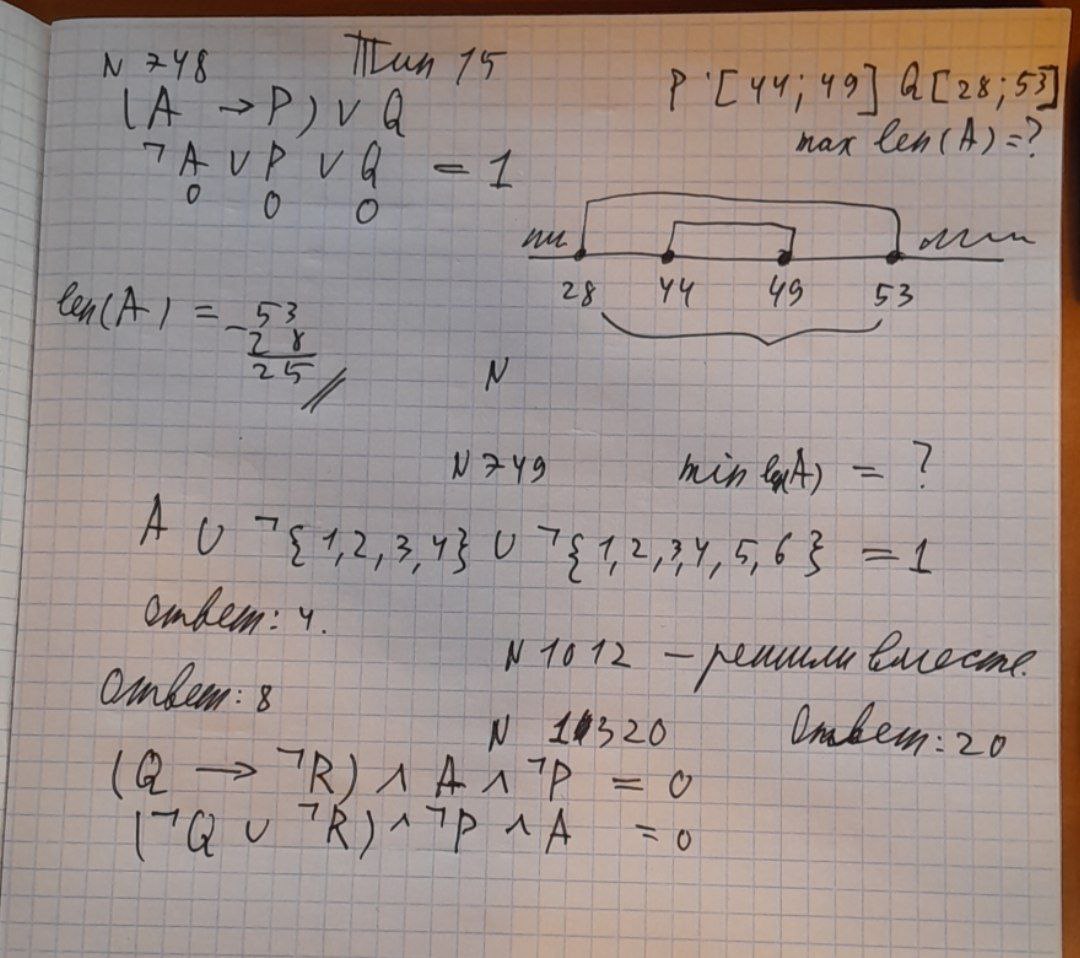 N 748 Тип 15
P [44; 49] Q [28; 53]
(A → P) ∨ Q
max len(A) = ?
¬A ∨ P ∨ Q = 1
0 0 0
28 44 49 53
len(A) = 53
- 28
25
N
N 749 min len(A) = ?
A ∪ ¬{1,2,3,4} ∪ ¬{1,2,3,4,5,6} = 1
Ответ: 4.
N 1012 – решили вместе.
Ответ: 8
N 11320 Ответ: 20
(Q → ¬R) ∧ A ∧ ¬P = 0
(¬Q ∪ ¬R) ∧ ¬P ∧ A = 0